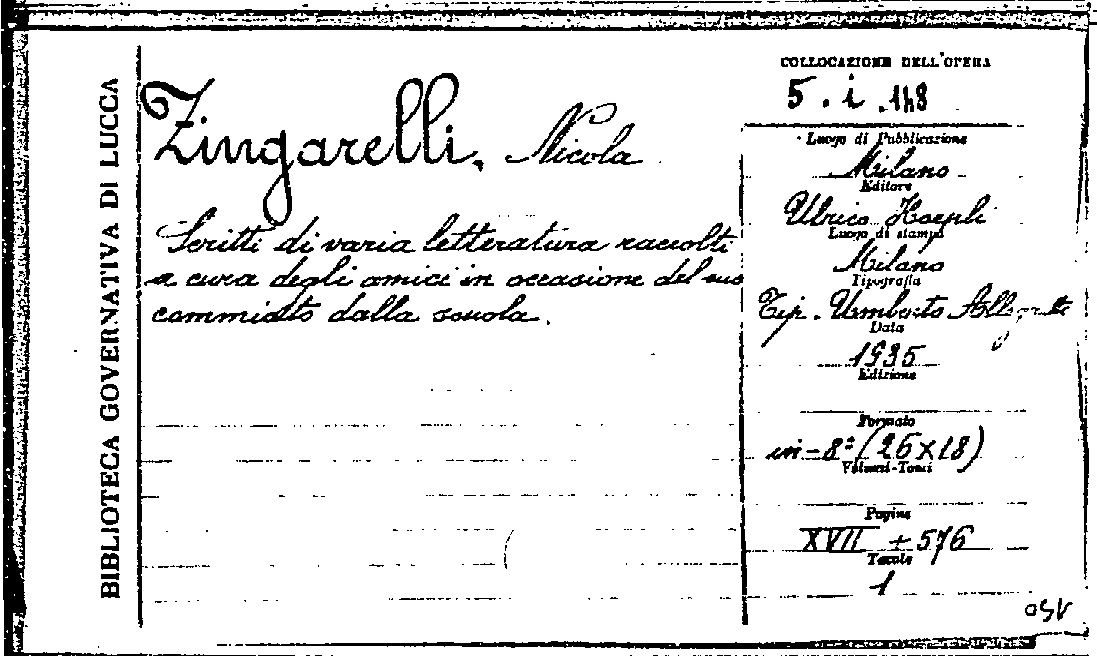 BIBLIOTECA GOVERNATIVA DI LUCCA
Zingarelli, Nicola
Scritti di varia letteratura raccolti
a cura degli amici in occasione del suo
commiato dalla scuola.
COLLOCAZIONE DELL'OPERA
5. i. 148
Luogo di Pubblicazione
Milano
Editore
Ulrico Hoepli
Luogo di stampa
Milano
Tipografia
Tip. Umberto Allegretti
Data
1935
Edizione
Formato
in-8° (26x18)
Volumi-Tomi
Pagine
XVII + 576
Tavole
1